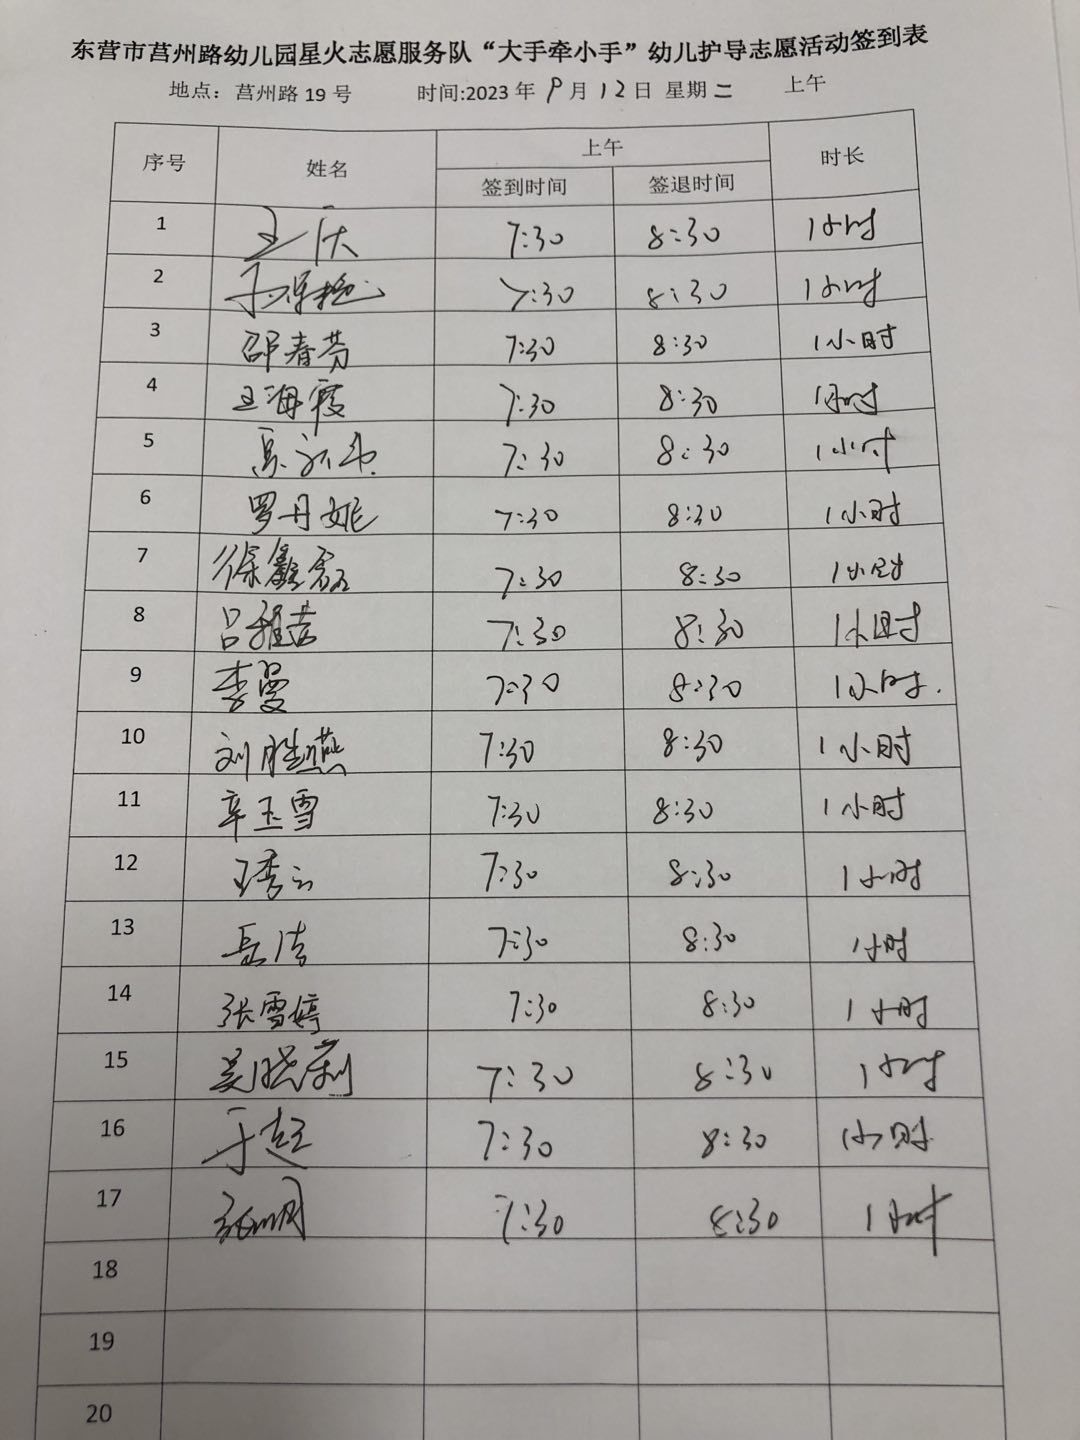 东营市莒州路幼儿园星火志愿服务队“大手牵小手”幼儿护导志愿活动签到表
地点：莒州路 19 号 时间:2023 年 9 月 12 日 星期 二 上午
序号 姓名 上午 时长
签到时间 签退时间
1 7:30 8:30 1小时
2 7:30 8:30 1小时
3 邵春芬 7:30 8:30 1小时
4 王海霞 7:30 8:30 1小时
5 7:30 8:30 1小时
6 罗丹妮 7:30 8:30 1小时
7 徐鑫磊 7:30 8:30 1小时
8 吕雅洁 7:30 8:30 1小时
9 李曼 7:30 8:30 1小时.
10 刘胜燕 7:30 8:30 1小时
11 辛玉雪 7:30 8:30 1小时
12 王秀云 7:30 8:30 1小时
13 岳洁 7:30 8:30 1小时
14 张雪婷 7:30 8:30 1小时
15 吴晓莉 7:30 8:30 1小时
16 于超 7:30 8:30 1小时
17 7:30 8:30 1小时
18
19
20